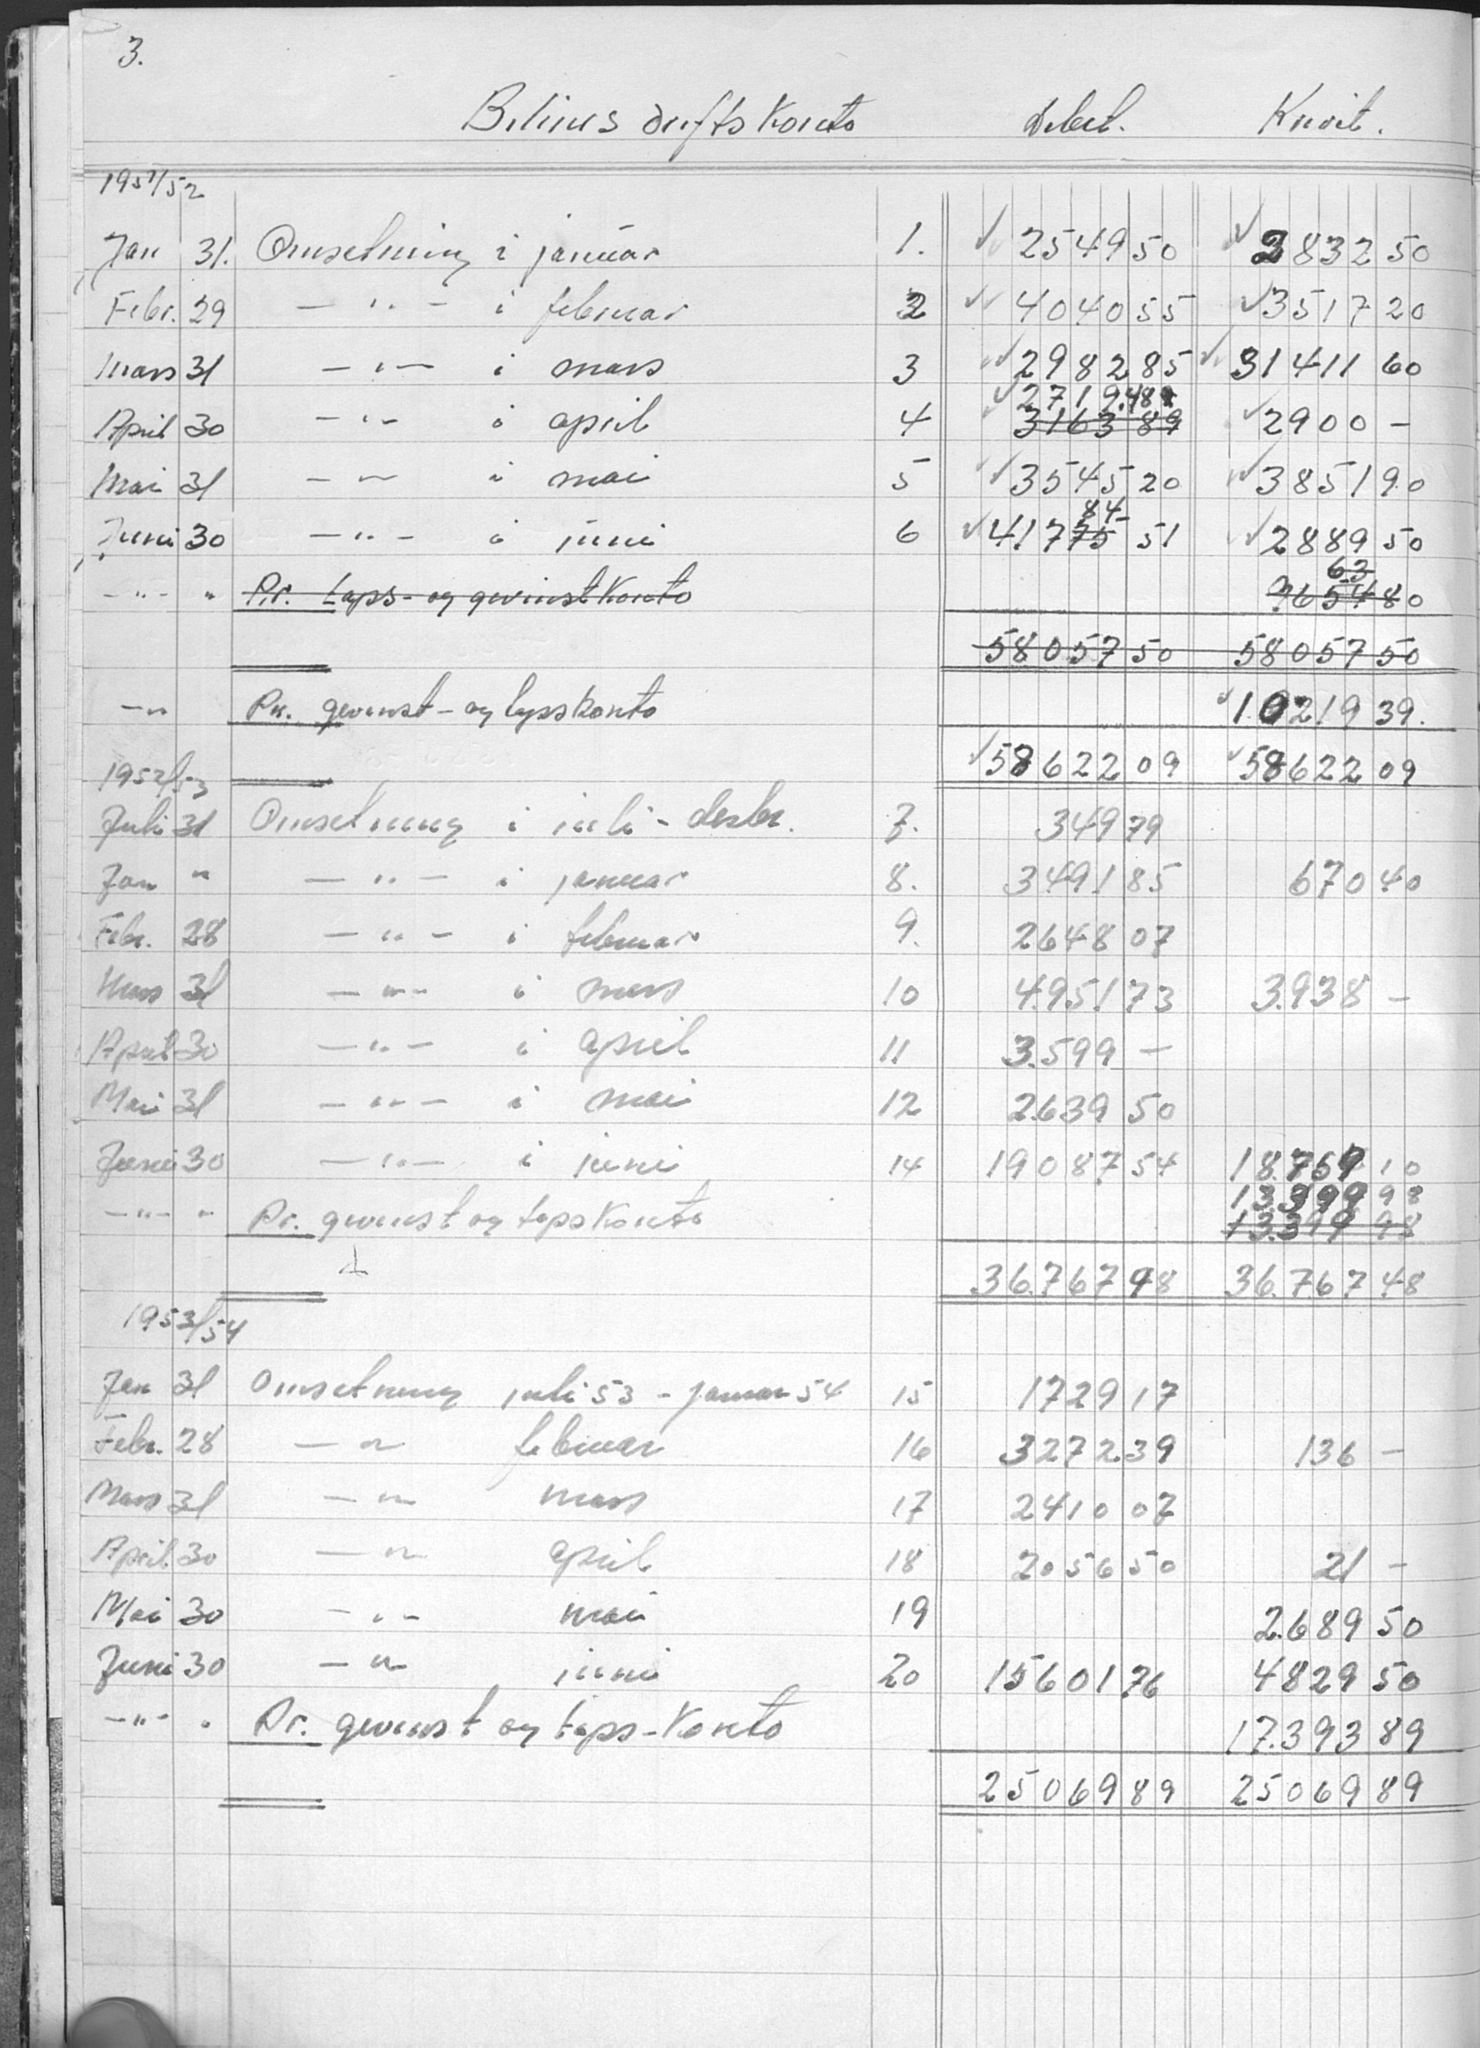 3.
Bilens driftskonto Debet. Kredit.
1951/52
Jan 31. Omsetning i januar 1. 2549 50 3832 50
Febr. 29 — " — i februar 2 4040 55 3517 20
Mars 31 — " — i mars 3 2982 85 31411 60
April 30 — " — i april 4 3163 89 2900 —
Mai 31 — " — i mai 5 3545 20 3851 90
84
Juni 30 — " — i juni 6 41775 51 2889 50
63
— " — " Pr. Taps- og gevinstkonto 9654 80
58057 50 58057 50
— " Pr. gevinst- og tapskonto 10219 39.
58622 09 58622 09
1952/53
Juli 31 Omsetning i juli - desbr. 7. 349 79
Jan " — " — i januar 8. 3491 85 670 40
Febr. 28 — " — i februar 9. 2648 07
Mars 31 — " — i mars 10 4.951 73 3.938 —
April 30 — " — i april 11 3.599 —
Mai 31 — " — i mai 12 2.639 50
Juni 30 — " — i juni 14 19087 54 18.759 10
13.399 98
— " — " Pr. gevinst og tapskonto 13.399 98
36.767 48 36.767 48
1953/54
Jan 31 Omsetning juli 53 - januar 54 15 1729 17
Febr. 28 — " februar 16 3272 39 136 —
Mars 31 — " mars 17 2410 07
April 30 — " april 18 2056 50 21 —
Mai 30 — " — mai 19 2.689 50
Juni 30 — " juni 20 15601 76 4829 50
— " — " Pr. gevinst og taps-konto 17.393 89
25069 89 25069 89